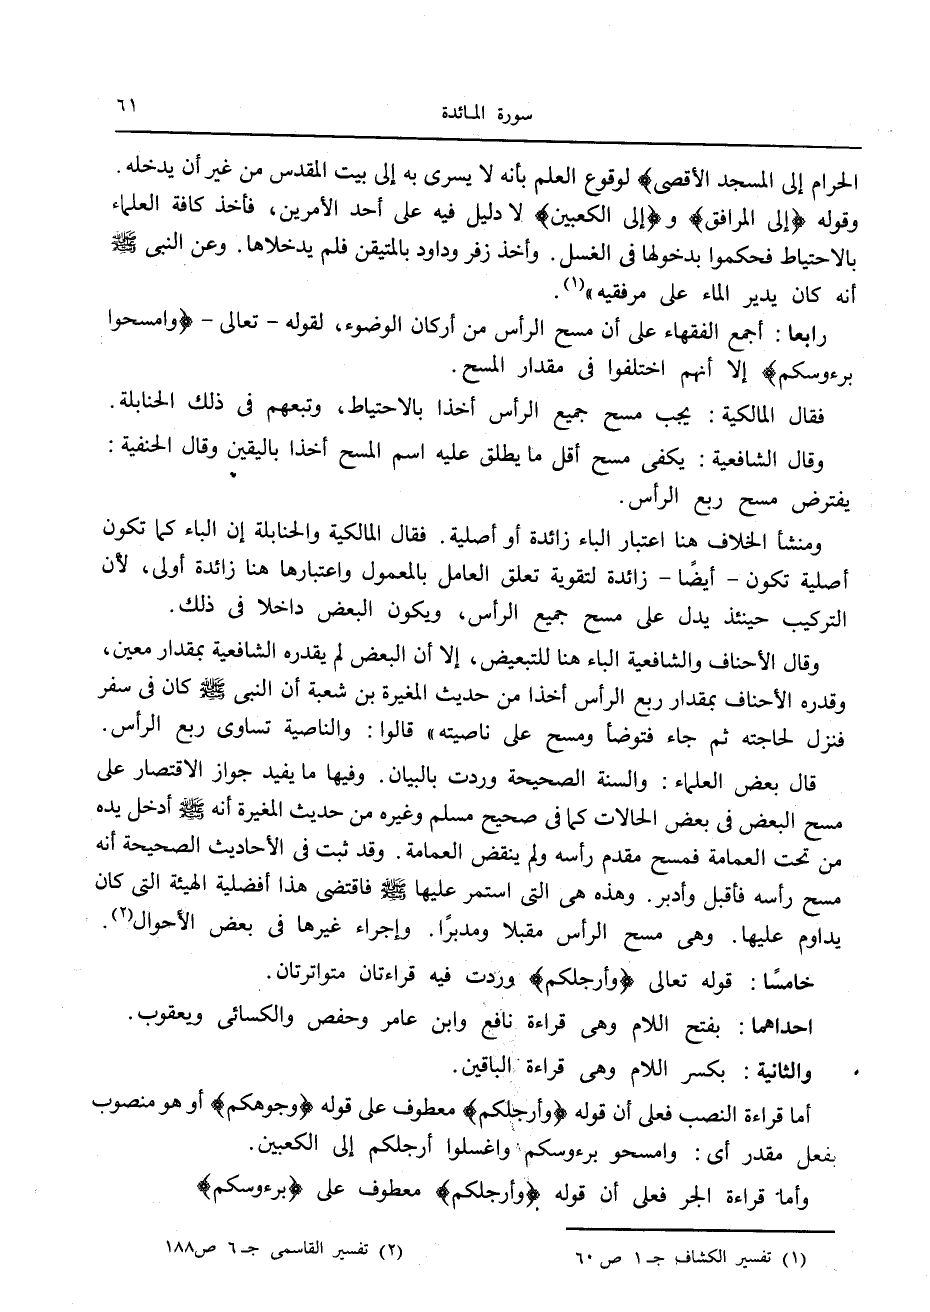 سورة المائدة ٦١
الحرام إلى المسجد الأقصى﴾ لوقوع العلم بأنه لا يسرى به إلى بيت المقدس من غير أن يدخله.
وقوله ﴿إلى المرافق﴾ و﴿إلى الكعبين﴾ لا دليل فيه على أحد الأمرين، فأخذ كافة العلماء
بالاحتياط فحكموا بدخولها فى الغسل. وأخذ زفر وداود بالمتيقن فلم يدخلاها. وعن النبى ﷺ
أنه كان يدير الماء على مرفقيه»(١).
رابعا: أجمع الفقهاء على أن مسح الرأس من أركان الوضوء، لقوله - تعالى - ﴿وامسحوا
برءوسكم﴾ إلا أنهم اختلفوا فى مقدار المسح.
فقال المالكية: يجب مسح جميع الرأس أخذا بالاحتياط، وتبعهم فى ذلك الحنابلة.
وقال الشافعية: يكفى مسح أقل ما يطلق عليه اسم المسح أخذا باليقين وقال الحنفية:
يفترض مسح ربع الرأس.
ومنشأ الخلاف هنا اعتبار الباء زائدة أو أصلية. فقال المالكية والحنابلة إن الباء كما تكون
أصلية تكون - أيضًا - زائدة لتقوية تعلق العامل بالمعمول واعتبارها هنا زائدة أولى، لأن
التركيب حينئذ يدل على مسح جميع الرأس، ويكون البعض داخلا فى ذلك.
وقال الأحناف والشافعية الباء هنا للتبعيض، إلا أن البعض لم يقدره الشافعية بمقدار معين،
وقدره الأحناف بمقدار ربع الرأس أخذا من حديث المغيرة بن شعبة أن النبى ﷺ كان فى سفر
فنزل لحاجته ثم جاء فتوضأ ومسح على ناصيته» قالوا: والناصية تساوى ربع الرأس.
قال بعض العلماء: والسنة الصحيحة وردت بالبيان. وفيها ما يفيد جواز الاقتصار على
مسح البعض فى بعض الحالات كما فى صحيح مسلم وغيره من حديث المغيرة أنه ﷺ أدخل يده
من تحت العمامة فمسح مقدم رأسه ولم ينقض العمامة. وقد ثبت فى الأحاديث الصحيحة أنه
مسح رأسه فأقبل وأدبر. وهذه هى التى استمر عليها ﷺ فاقتضى هذا أفضلية الهيئة التى كان
يداوم عليها. وهى مسح الرأس مقبلا ومدبرًا. وإجراء غيرها فى بعض الأحوال(٢).
خامسًا: قوله تعالى ﴿وأرجلكم﴾ وردت فيه قراءتان متواترتان.
احداهما: بفتح اللام وهى قراءة نافع وابن عامر وحفص والكسائى ويعقوب.
والثانية: بكسر اللام وهى قراءة الباقين.
أما قراءة النصب فعلى أن قوله ﴿وأرجلكم﴾ معطوف على قوله ﴿وجوهكم﴾ أو هو منصوب
بفعل مقدر أى: وامسحو برءوسكم واغسلوا أرجلكم إلى الكعبين.
وأما قراءة الجر فعلى أن قوله ﴿وأرجلكم﴾ معطوف على ﴿برءوسكم﴾
(١) تفسير الكشاف جـ ١ ص ٦٠ (٢) تفسير القاسمى جـ ٦ ص١٨٨